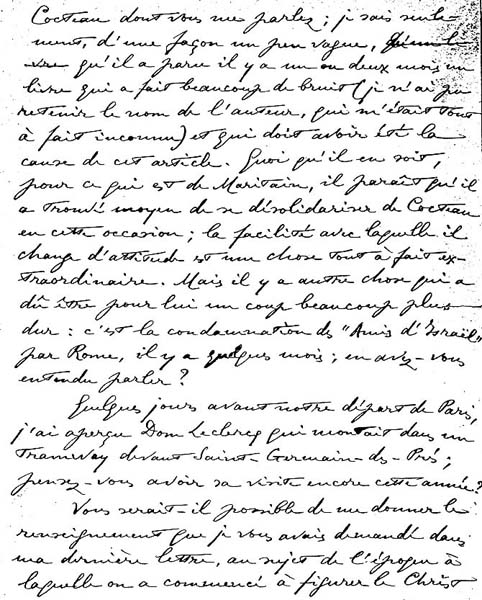 Cocteau dont vous me parlez ; je sais seule-
ment, d'une façon un peu vague,
qu'il a paru il y a un ou deux mois un
livre qui a fait beaucoup de bruit (je n'ai pu
retenir le nom de l'auteur, qui m'était tout
à fait inconnu) et qui doit avoir été la
cause de cet article. Quoi qu'il en soit,
pour ce qui est de Maritain, il paraît qu'il
a trouvé moyen de se désolidariser de Cocteau
en cette occasion ; la facilité avec laquelle il
change d'attitude est une chose tout à fait ex-
traordinaire. Mais il y a autre chose qui a
dû être pour lui un coup beaucoup plus
dur : c'est la condamnation des "Amis d'Israël"
par Rome, il y a quelques mois ; en avez-vous
entendu parler ?
Quelques jours avant notre départ de Paris,
j'ai aperçu Dom Leclercq qui montait dans un
tramway devant Saint-Germain-des-Prés ;
pensez-vous avoir sa visite encore cette année ?
Vous serait-il possible de me donner le
renseignement que je vous avais demandé dans
ma dernière lettre, au sujet de l'époque à
laquelle on a commencé à figurer le Christ